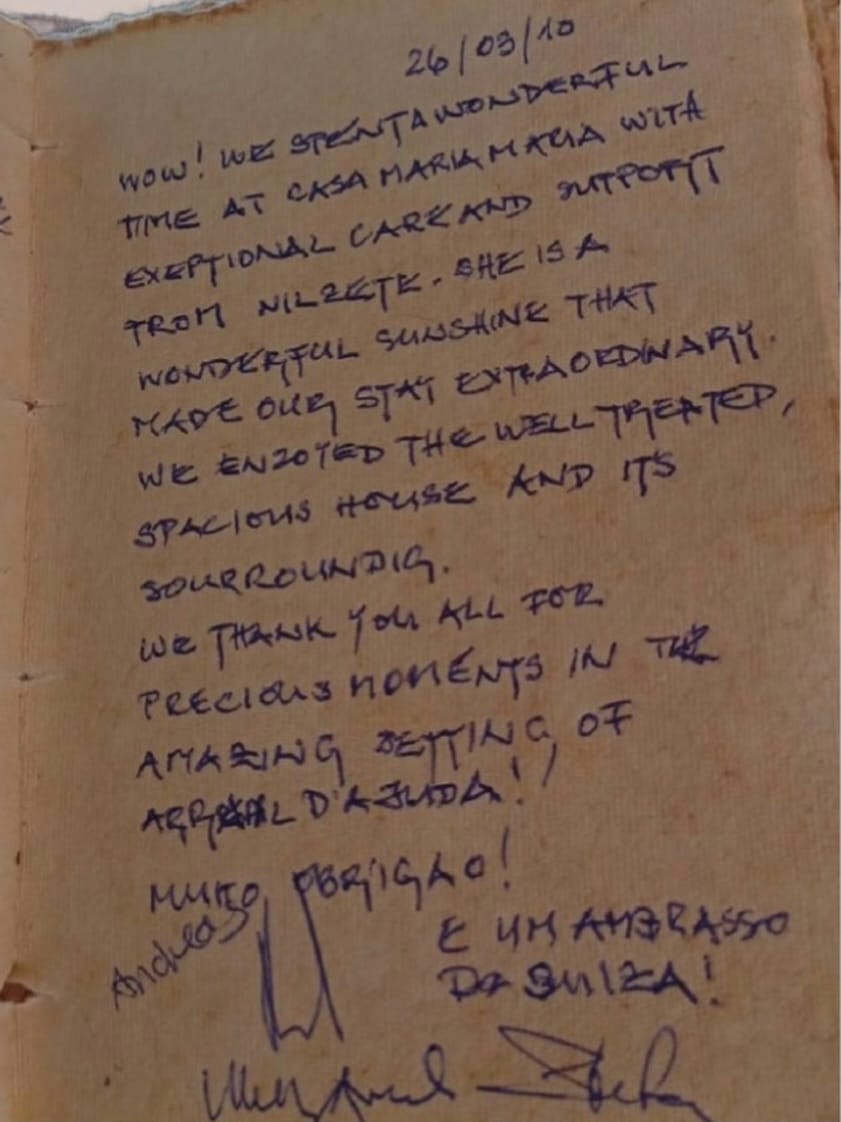 26/03/10
WOW! WE SPENT A WONDERFUL
TIME AT CASA MARIA MARIA WITH
EXEPTIONAL CARE AND SUTPORTT
FROM NILZETE. SHE IS A
WONDERFUL SUNSHINE THAT
MADE OUR STAY EXTRAORDINARY.
WE ENZOYED THE WELL TREATED,
SPACIOUS HOUSE AND ITS
SOURROUNDIG.
WE THANK YOU ALL FOR
PRECIOUS MOMENTS IN THE
AMAZING SETTING OF
ARRAIAL D'AJUDA!!
MUITO OBRIGAO!
E UM AMBRASSO
DA SUIZA!
Andreas